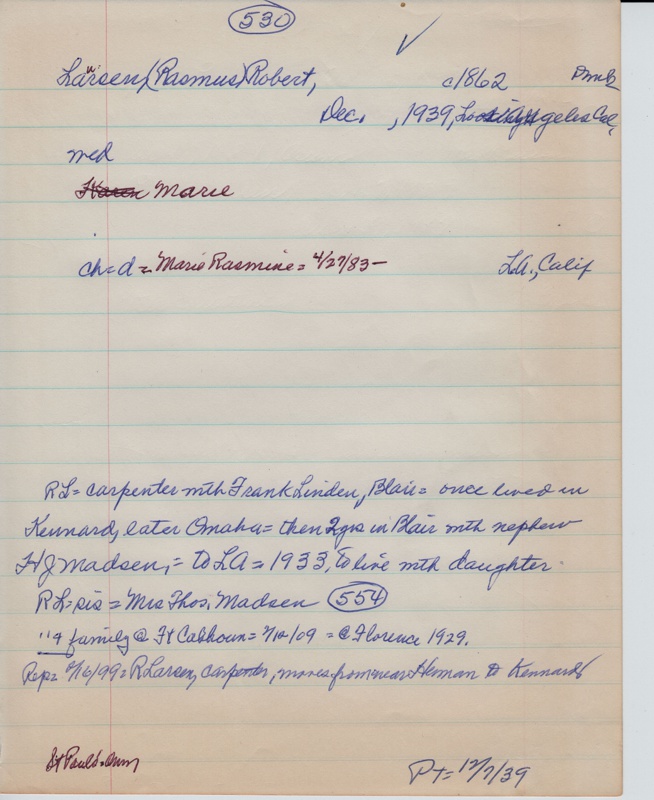 530
Larsen, (Rasmus) Robert, c1862 Dmk
Dec. , 1939, Los Angeles Cal,
med
Karen Marie
ch=d=Marie Rasmine= 4/27/83- L.A., Calif
RL= carpenter with Frank Linden, Blair= once lived in
Kennard, later Omaha= then 2yrs in Blair with nephew
HJ Madsen,= to LA= 1933, to live with daughter.
RL=sis= Mrs Thos. Madsen 554
"4 family @ Ft Calhoun= 7/12/09 =@ Florence 1929.
Rep= /16/99= R Larsen, carpenter, moves from near Herman to Kennard
St Pauls= PT= 12/7/39